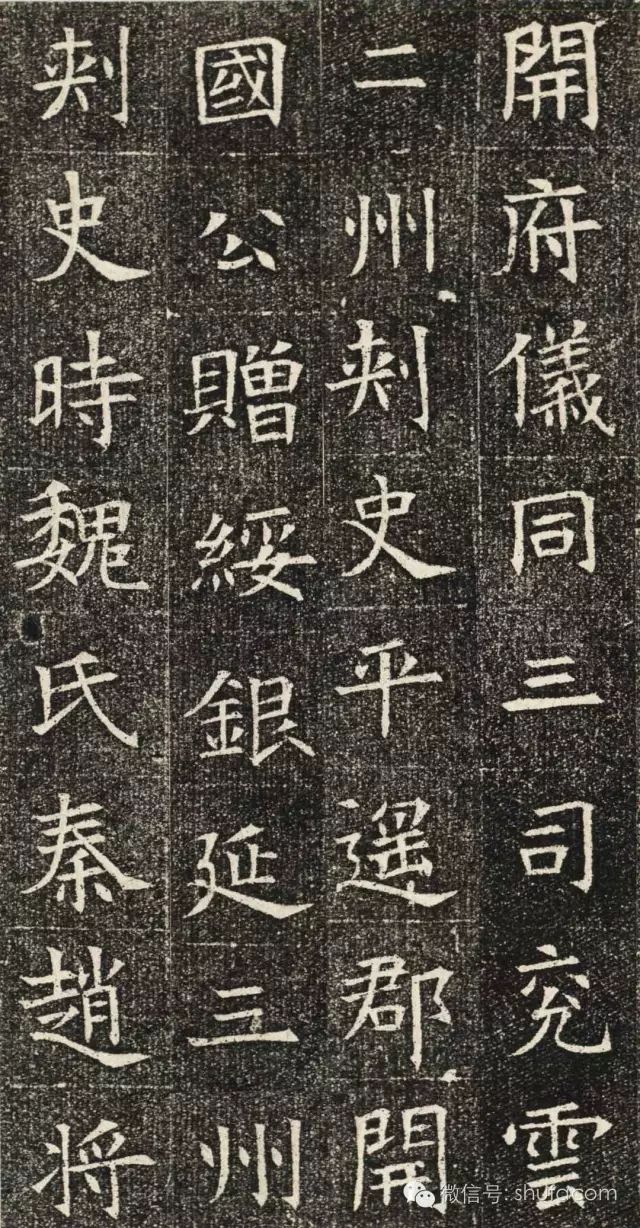 開府儀同三司兖雲
二州刺史平遥郡開
國公贈綏銀延三州
刺史時魏氏秦趙将
微信号: shufacom